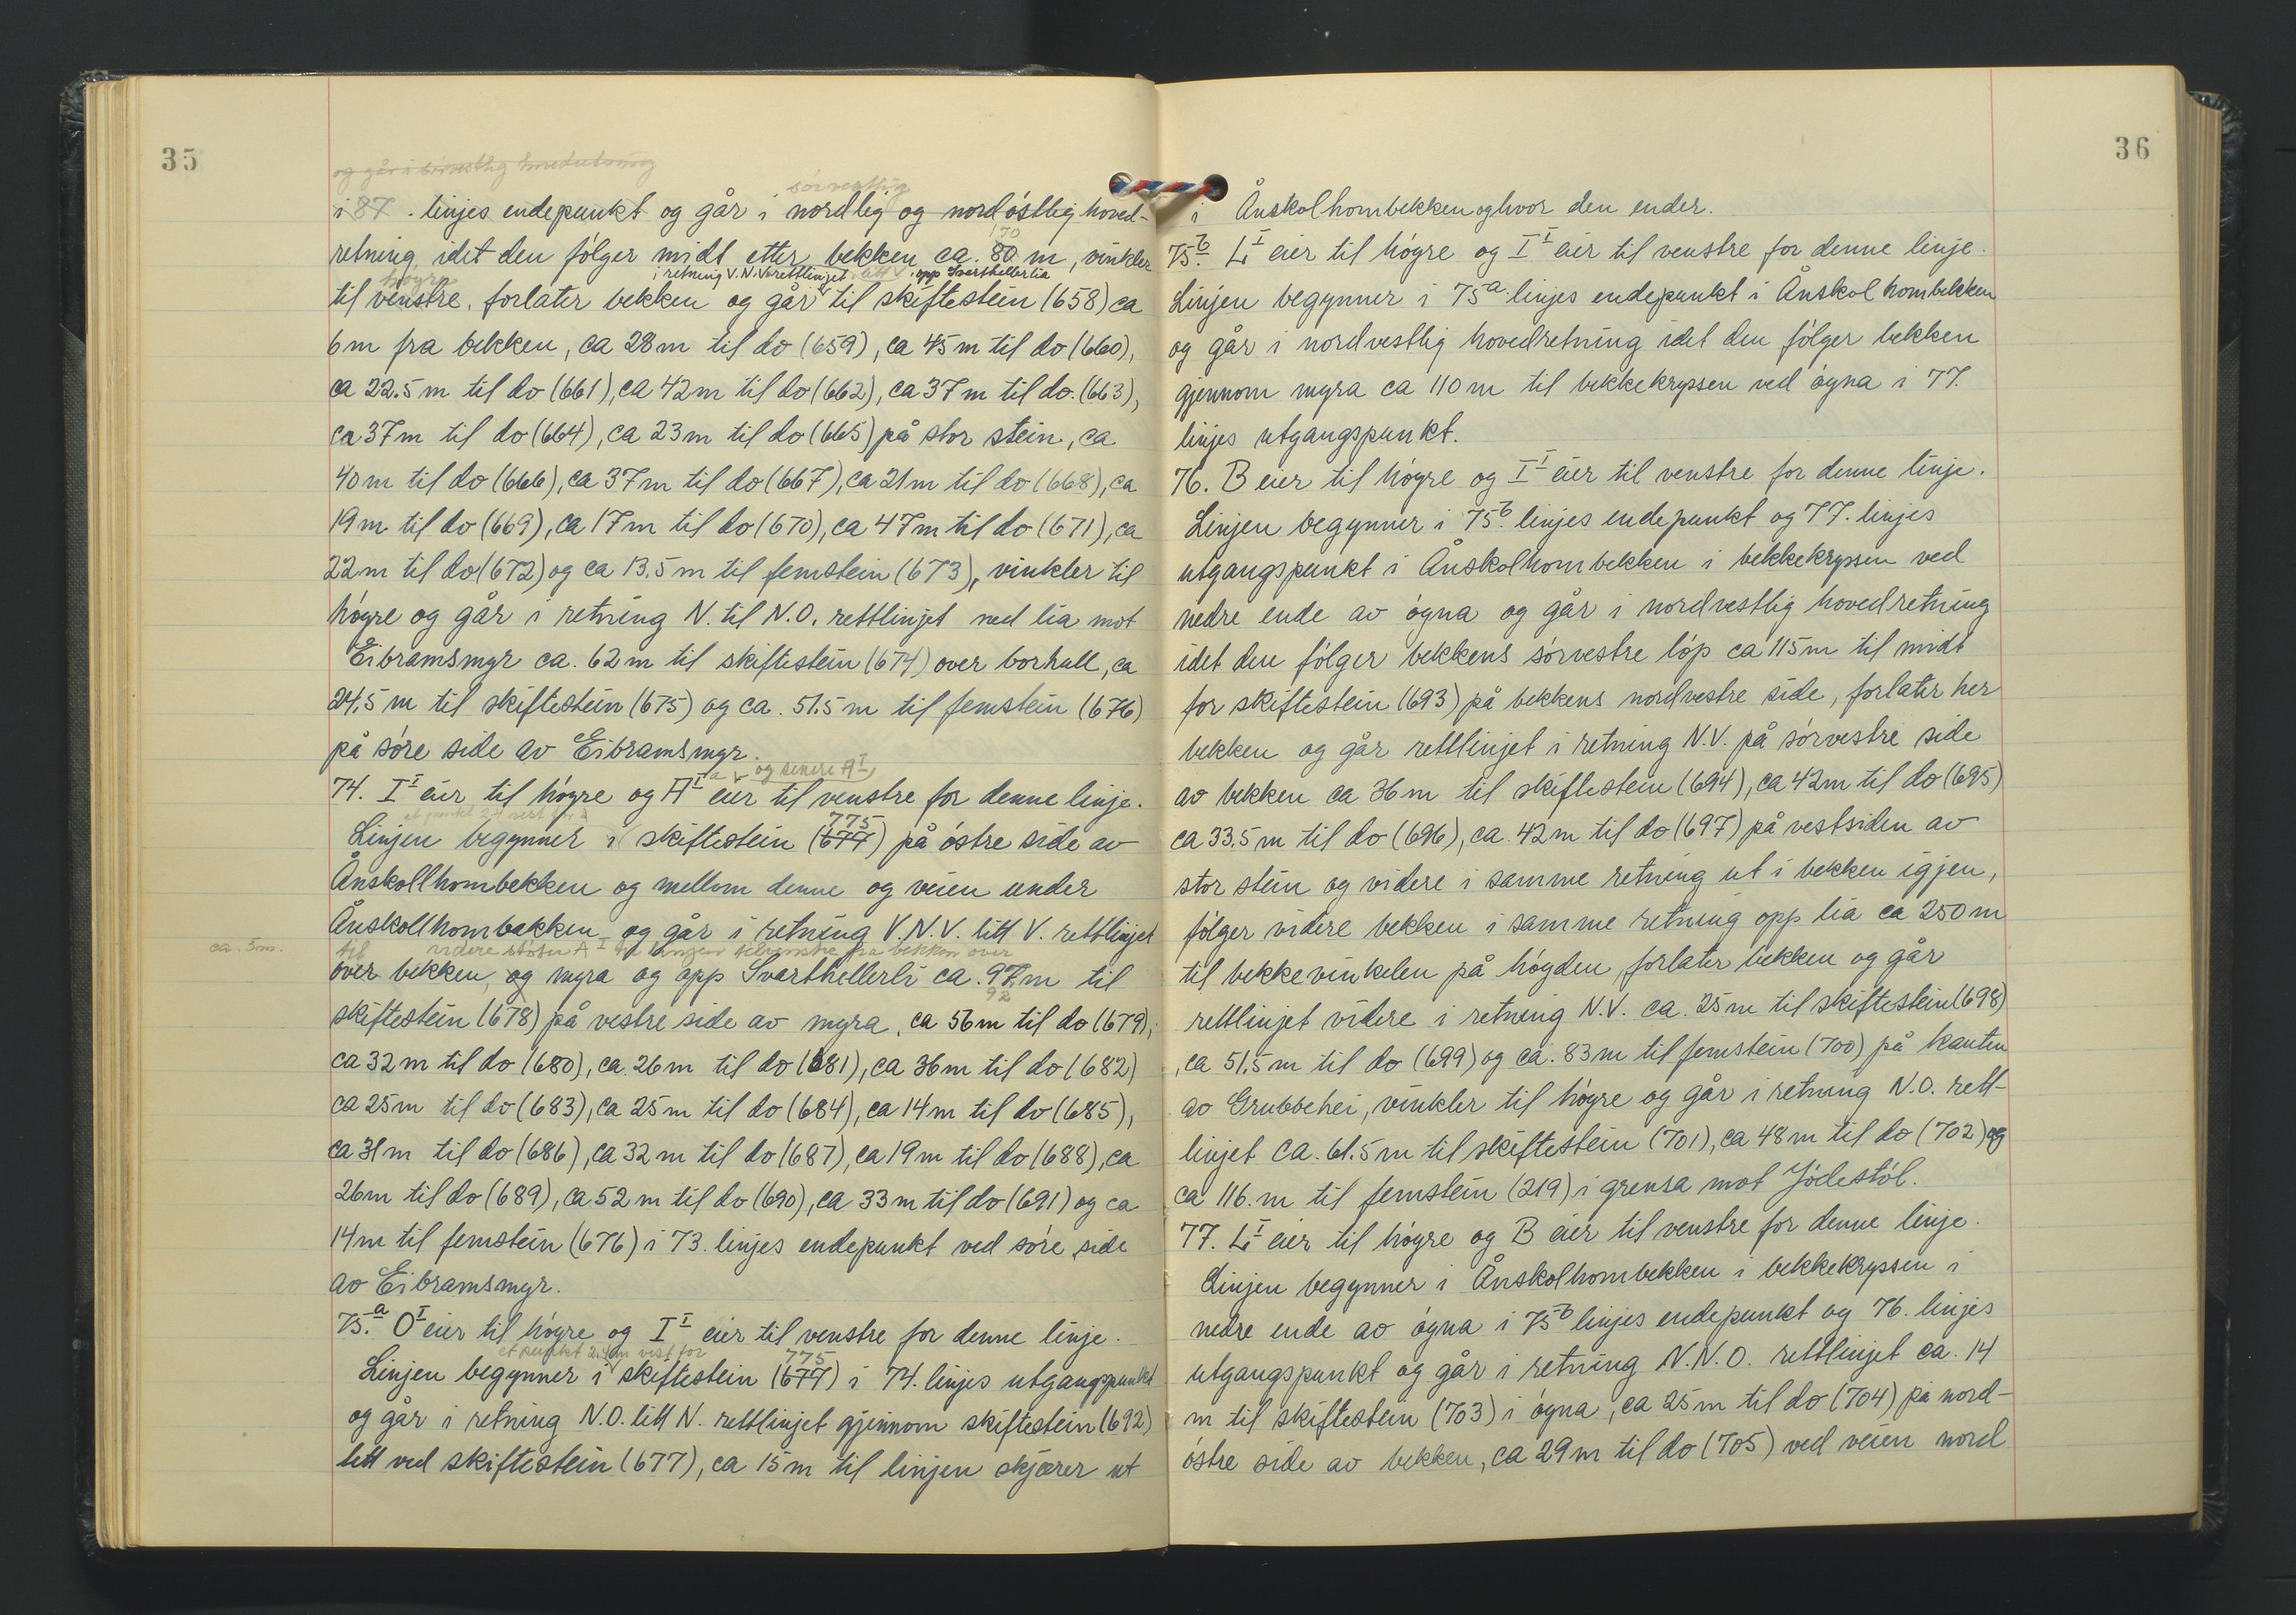 35
og går i sørvestlig hovedretning
sørvestlig
i 87. linjes endepunkt og går i nordlig og nordóstlig hoved-
170
retning, idet den fólger midt etter bekken ca. 80 m, vinkler
høgre i retning V.N.V. rettlinjet litt V. opp Svarthellerlia
til venstre, forlater bekken og går til skiftestein (658) ca
6m fra bekken, ca 28m til do (659), ca 45m til do (660),
ca 22.5 m til do (661), ca 42m til do (662), ca 37m til do. (663),
ca 37m til do (664), ca 23m til do (665) på stor stein, ca
40m til do (666), ca 37m til do (667), ca 21m til do (668), ca
19m til do (669), ca 17m til do (670), ca 47m til do (671), ca
22m til do (672) og ca 13.5 m til femstein (673), vinkler til
hógre og går i retning N. til N.O. rettlinjet ned lia mot
Eibramsmyr ca. 62m til skiftestein (674) over borhull, ca
24,5 m til skiftestein (675) og ca. 51.5m til femstein (676)
på sóre side av Eibramsmyr.
a og senere A I
74. I I eier til hógre og A I eier til venstre for denne linje.
et punkt 2.4 vest for 775
Linjen begynner i skiftestein (677) på óstre side av
Ånskollhombekken og mellom denne og veien under
Ånskollhombakken og går i retning V.N.V. litt V. rettlinjet
ca. 5m. til videre støter A I til linjen til venstre fra bekken over
over bekken, og myra og opp Svarthellerli ca. 97m til
92
skiftestein (678) på vestre side av myra, ca 56m til do (679),
ca 32m til do (680), ca. 26m til do (681), ca 36m til do (682)
ca 25m til do (683), ca 25m til do (684), ca 14m til do (685),
ca 31m til do (686), ca 32m til do (687), ca 19m til do (688), ca
26m til do (689), ca 52m til do (690), ca 33m til do (691) og ca
14m til femstein (676) i 73. linjes endepunkt ved sóre side
av Eibramsmyr.
75.a O I eier til hógre og I I eier til venstre for denne linje.
et punkt 2.4m vest for 775
Linjen begynner i skiftestein (677) i 74. linjes utgangspunkt
og går i retning N.O. litt N. rettlinjet gjennom skiftestein (692)
tett ved skiftestein (677), ca 15m til linjen skjærer ut
36
i Ånskolhombekken og hvor den ender.
75.b L I eier til hógre og I I eier til venstre for denne linje.
Linjen begynner i 75a. linjes endepunkt i Ånskolhombekken
og går i nordvestlig hovedretning idet den fólger bekken
gjennom myra ca 110m til bekkekryssen ved ógna i 77.
linjes utgangspunkt.
76. B eier til hógre og I I eier til venstre for denne linje.
Linjen begynner i 75b. linjes endepunkt og 77. linjes
utgangspunkt i Ånskolhombekken i bekkekryssen ved
nedre ende av ógna og går i nordvestlig hovedretning
idet den fólger bekkens sórvestre lóp ca 115m til midt
for skiftestein (693) på bekkens nordvestre side, forlater her
bekken og går rettlinjet i retning N.V. på sórvestre side
av bekken ca 36m til skiftestein (694), ca 42m til do (695)
ca 33.5m til do (696), ca. 42m til do (697) på vestsiden av
stor stein og videre i samme retning ut i bekken igjen,
fólger videre bekken i samme retning opp lia ca 250m
til bekkevinkelen på hógden, forlater bekken og går
rettlinjet videre i retning N.V. ca. 25m til skiftestein (698)
, ca 51.5m til do (699) og ca. 83m til femstein (700) på kanten
av Grubbehei, vinkler til hógre og går i retning N.O. rett-
linjet ca. 61.5m til skiftestein (701), ca 48m til do (702) og
ca 116.m til femstein (219) i grensa mot Jódestól.
77. L I eier til hógre og B eier til venstre for denne linje.
Linjen begynner i Ånskolhombekken i bekkekryssen i
nedre ende av ógna i 75b linjes endepunkt og 76. linjes
utgangspunkt og går i retning N.N.O. rettlinjet ca. 14
m til skiftestein (703) i ógna, ca 25m til do (704) på nord-
óstre side av bekken, ca 29m til do (705) ved veien nord